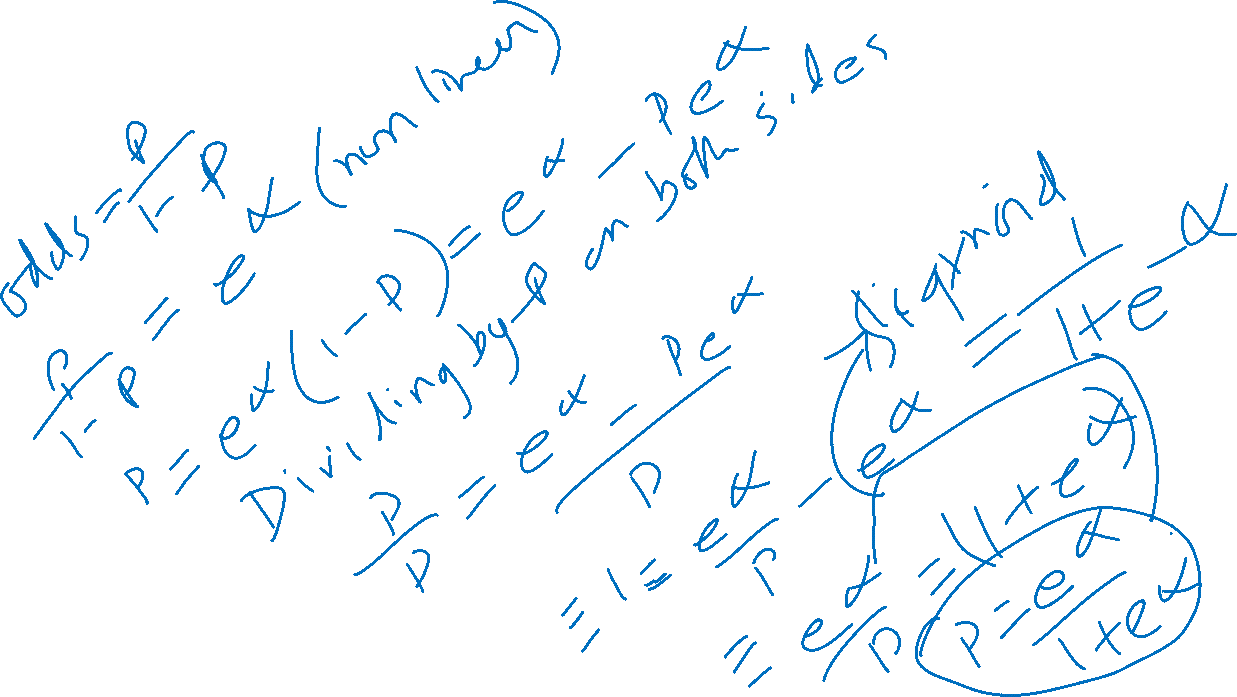 odds = P/1-P
P/1-P = e^α (non linear)
P = e^α (1-P) = e^α - Pe^α
Dividing by P on both sides
P/P = e^α - Pe^α / P
= 1 = e^α/P - e^α
= e^α/P = (1+e^α)
P = e^α/1+e^α
= 1/1+e^-α